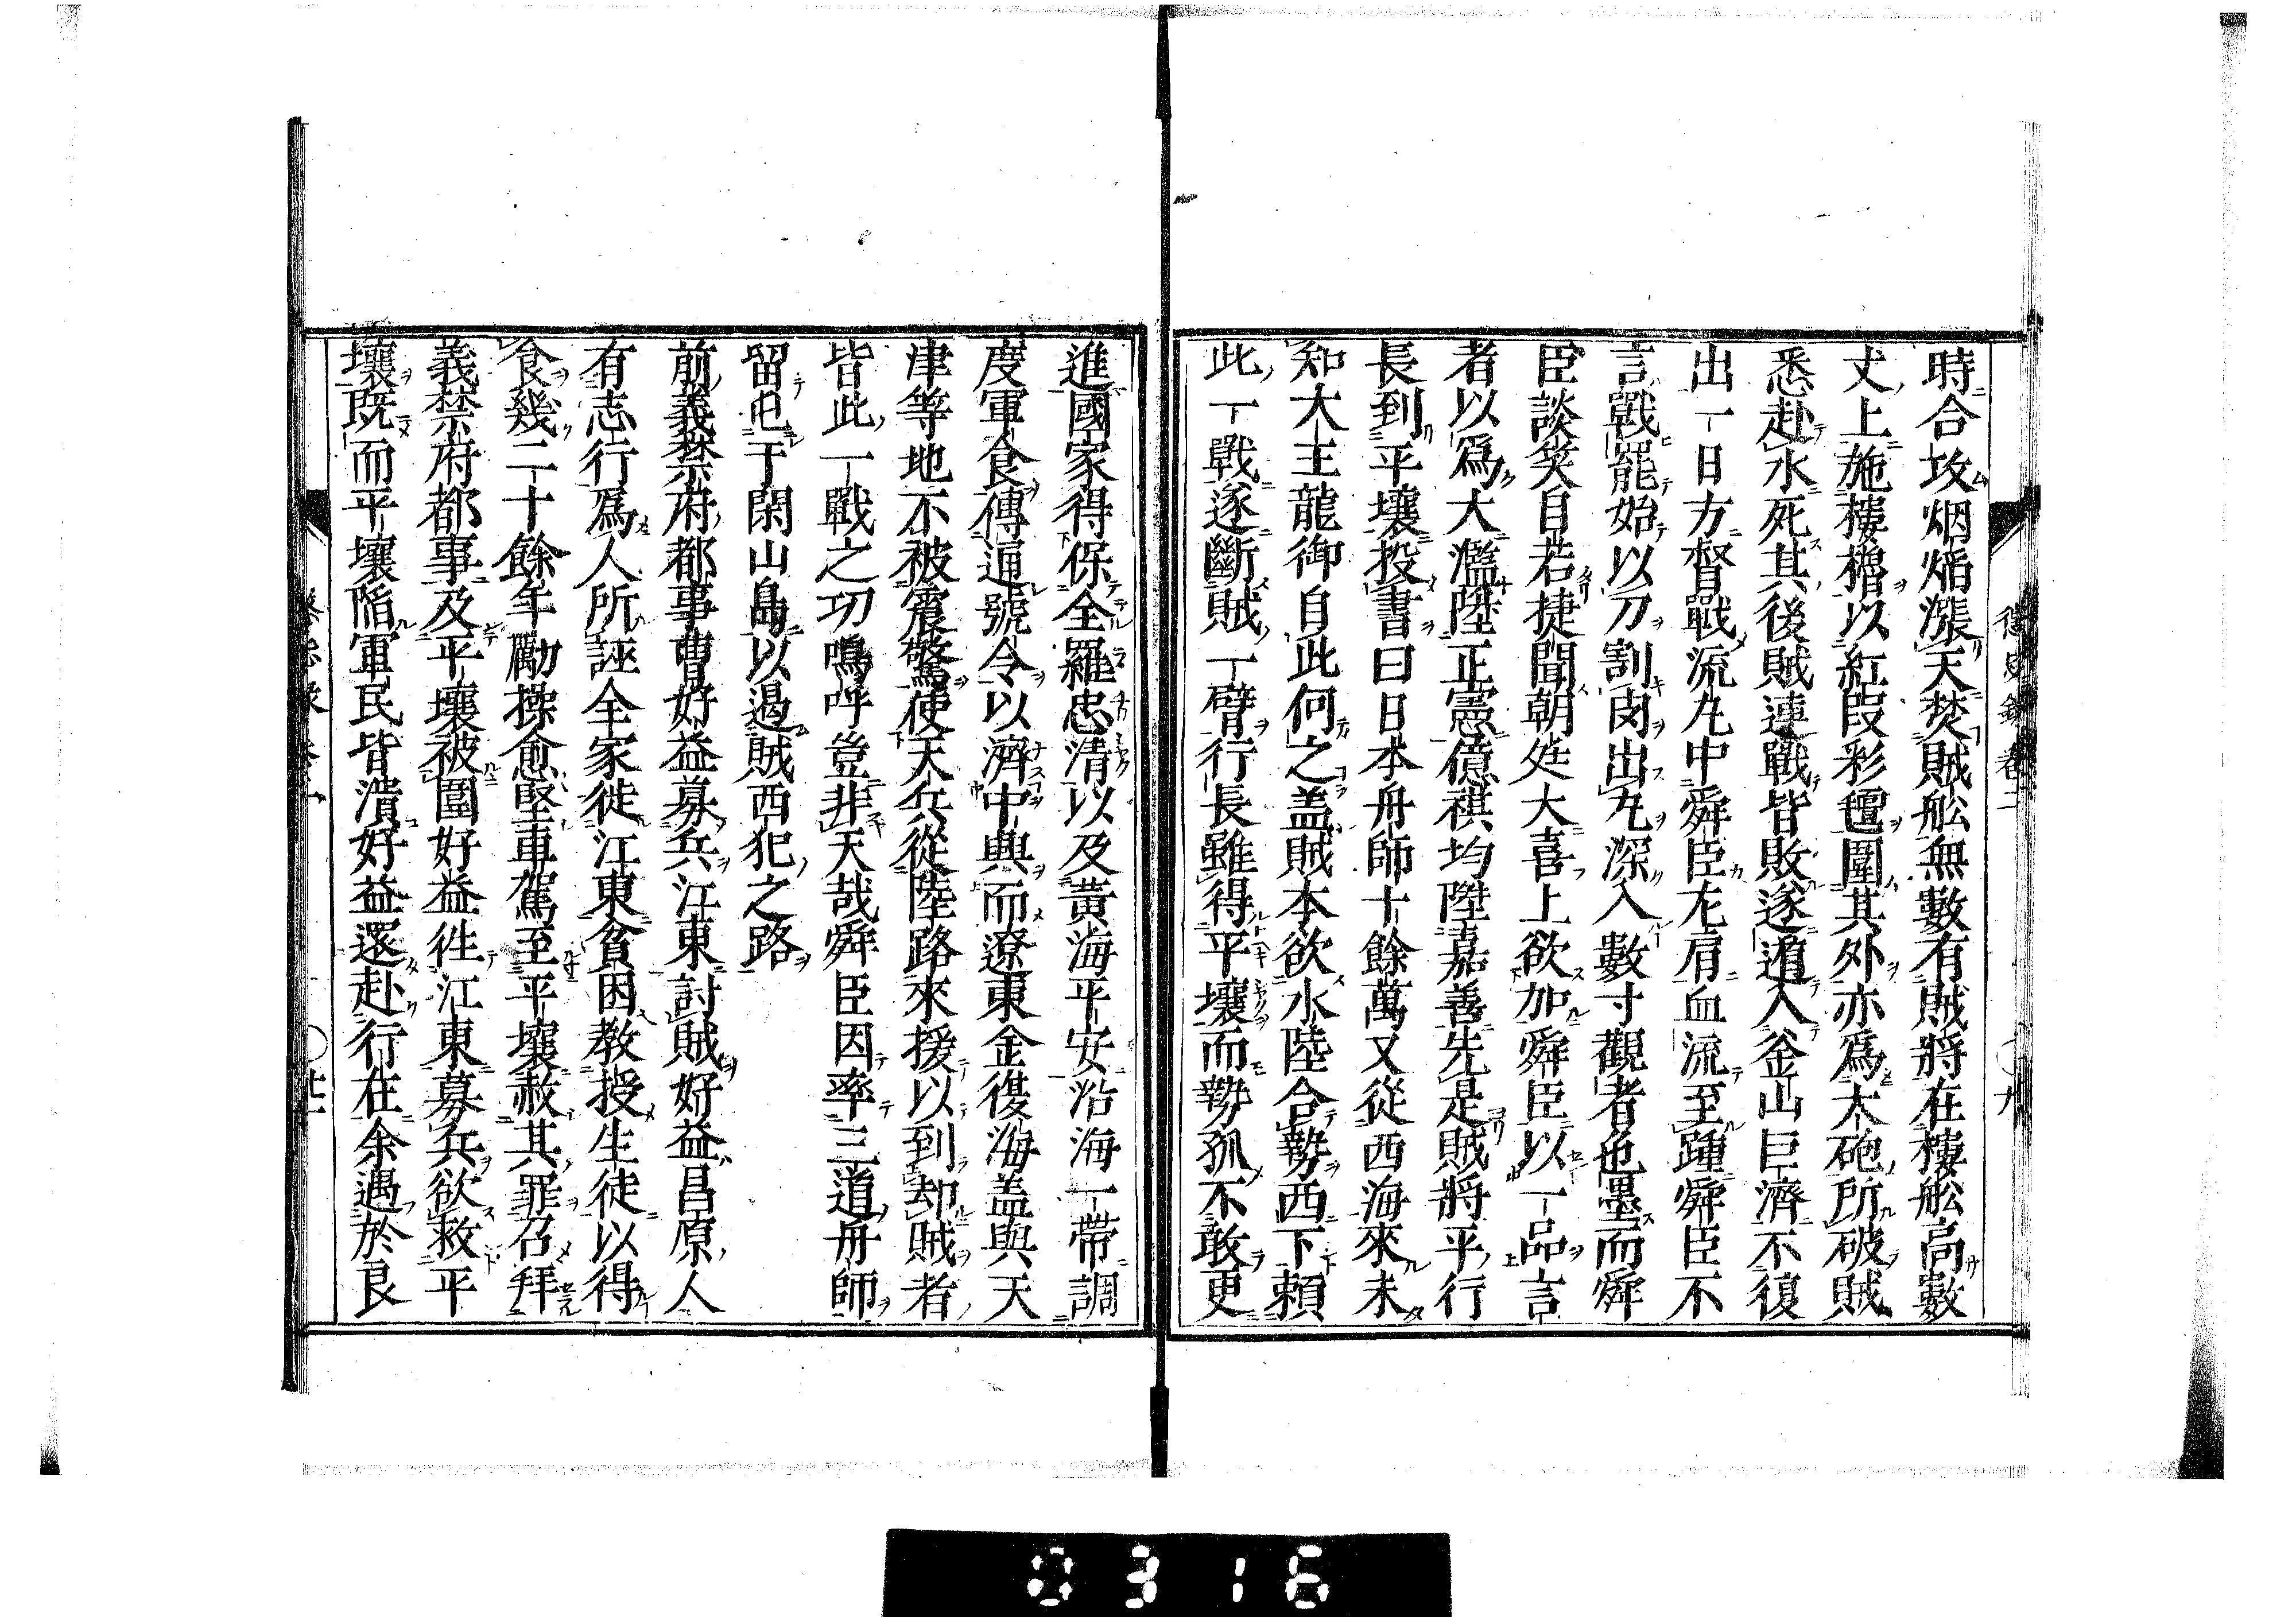 時合攻烟焔漲天焚賊舩無數有賊將在樓舩高數
丈上施樓櫓以紅段彩氊圍其外亦爲大砲所破賊
悉赴水死其後賊連戰皆敗遂遁入釜山巨濟不復
出一日方督戰流丸中舜臣左肩血流至踵舜臣不
言戰罷始以刀割肉出丸深入數寸觀者色墨而舜
臣談笑自若捷聞朝廷大喜上欲加舜臣以一品言
者以爲大濫陞正憲億祺均陞嘉善先是賊將平行
長到平壤投書曰日本舟師十餘萬又從西海來未
知大王龍御自此何之盖賊本欲水陸合勢西下頼
此一戰遂斷賊一臂行長雖得平壤而勢孤不敢更
進國家得保全羅忠清以及黃海平安沿海一帶調
度軍食傳通號令以濟中興而遼東金復海盖與天
津等地不被震驚使天兵從陸路來援以到却賊者
皆此一戰之功嗚呼豈非天哉舜臣因率三道舟師
留屯于閑山島以遏賊西犯之路
前義禁府都事曹好益募兵江東討賊好益昌原人
有志行爲人所誣全家徙江東貧困教授生徒以得
食幾二十餘年勵操愈堅車駕至平壤赦其罪召拜
義禁府都事及平壤被圍好益往江東募兵欲救平
壤既而平壤陥軍民皆潰好益還赴行在余遇於良
〇九
0316